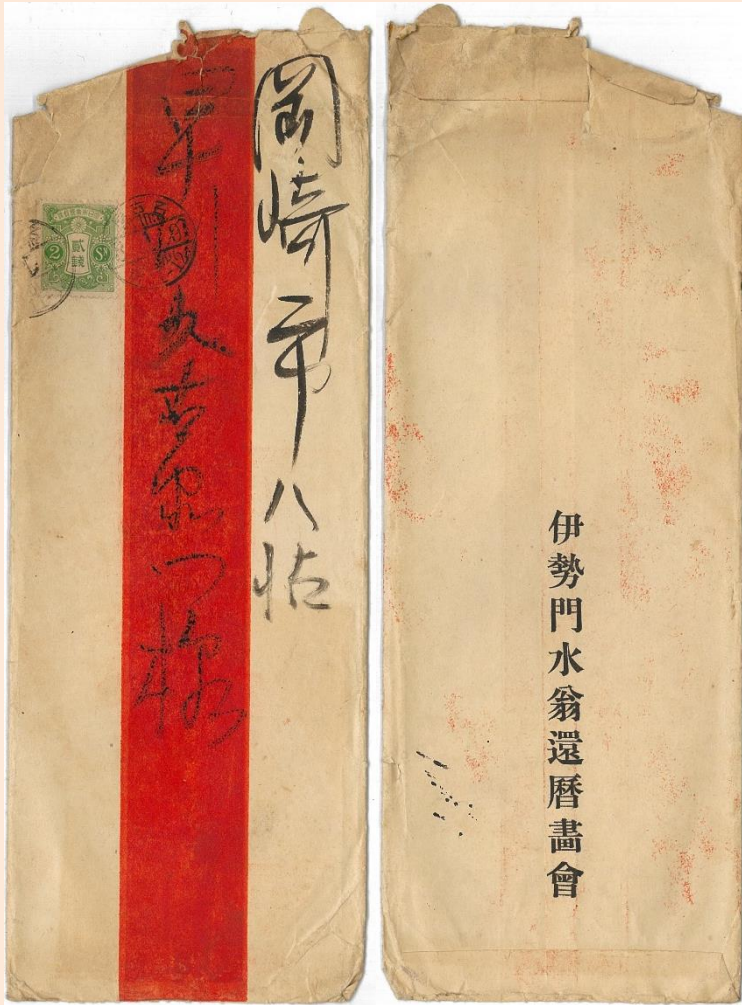 岡崎市八帖
早川久右衛門様
貳錢
2
伊勢門水翁還暦畫會